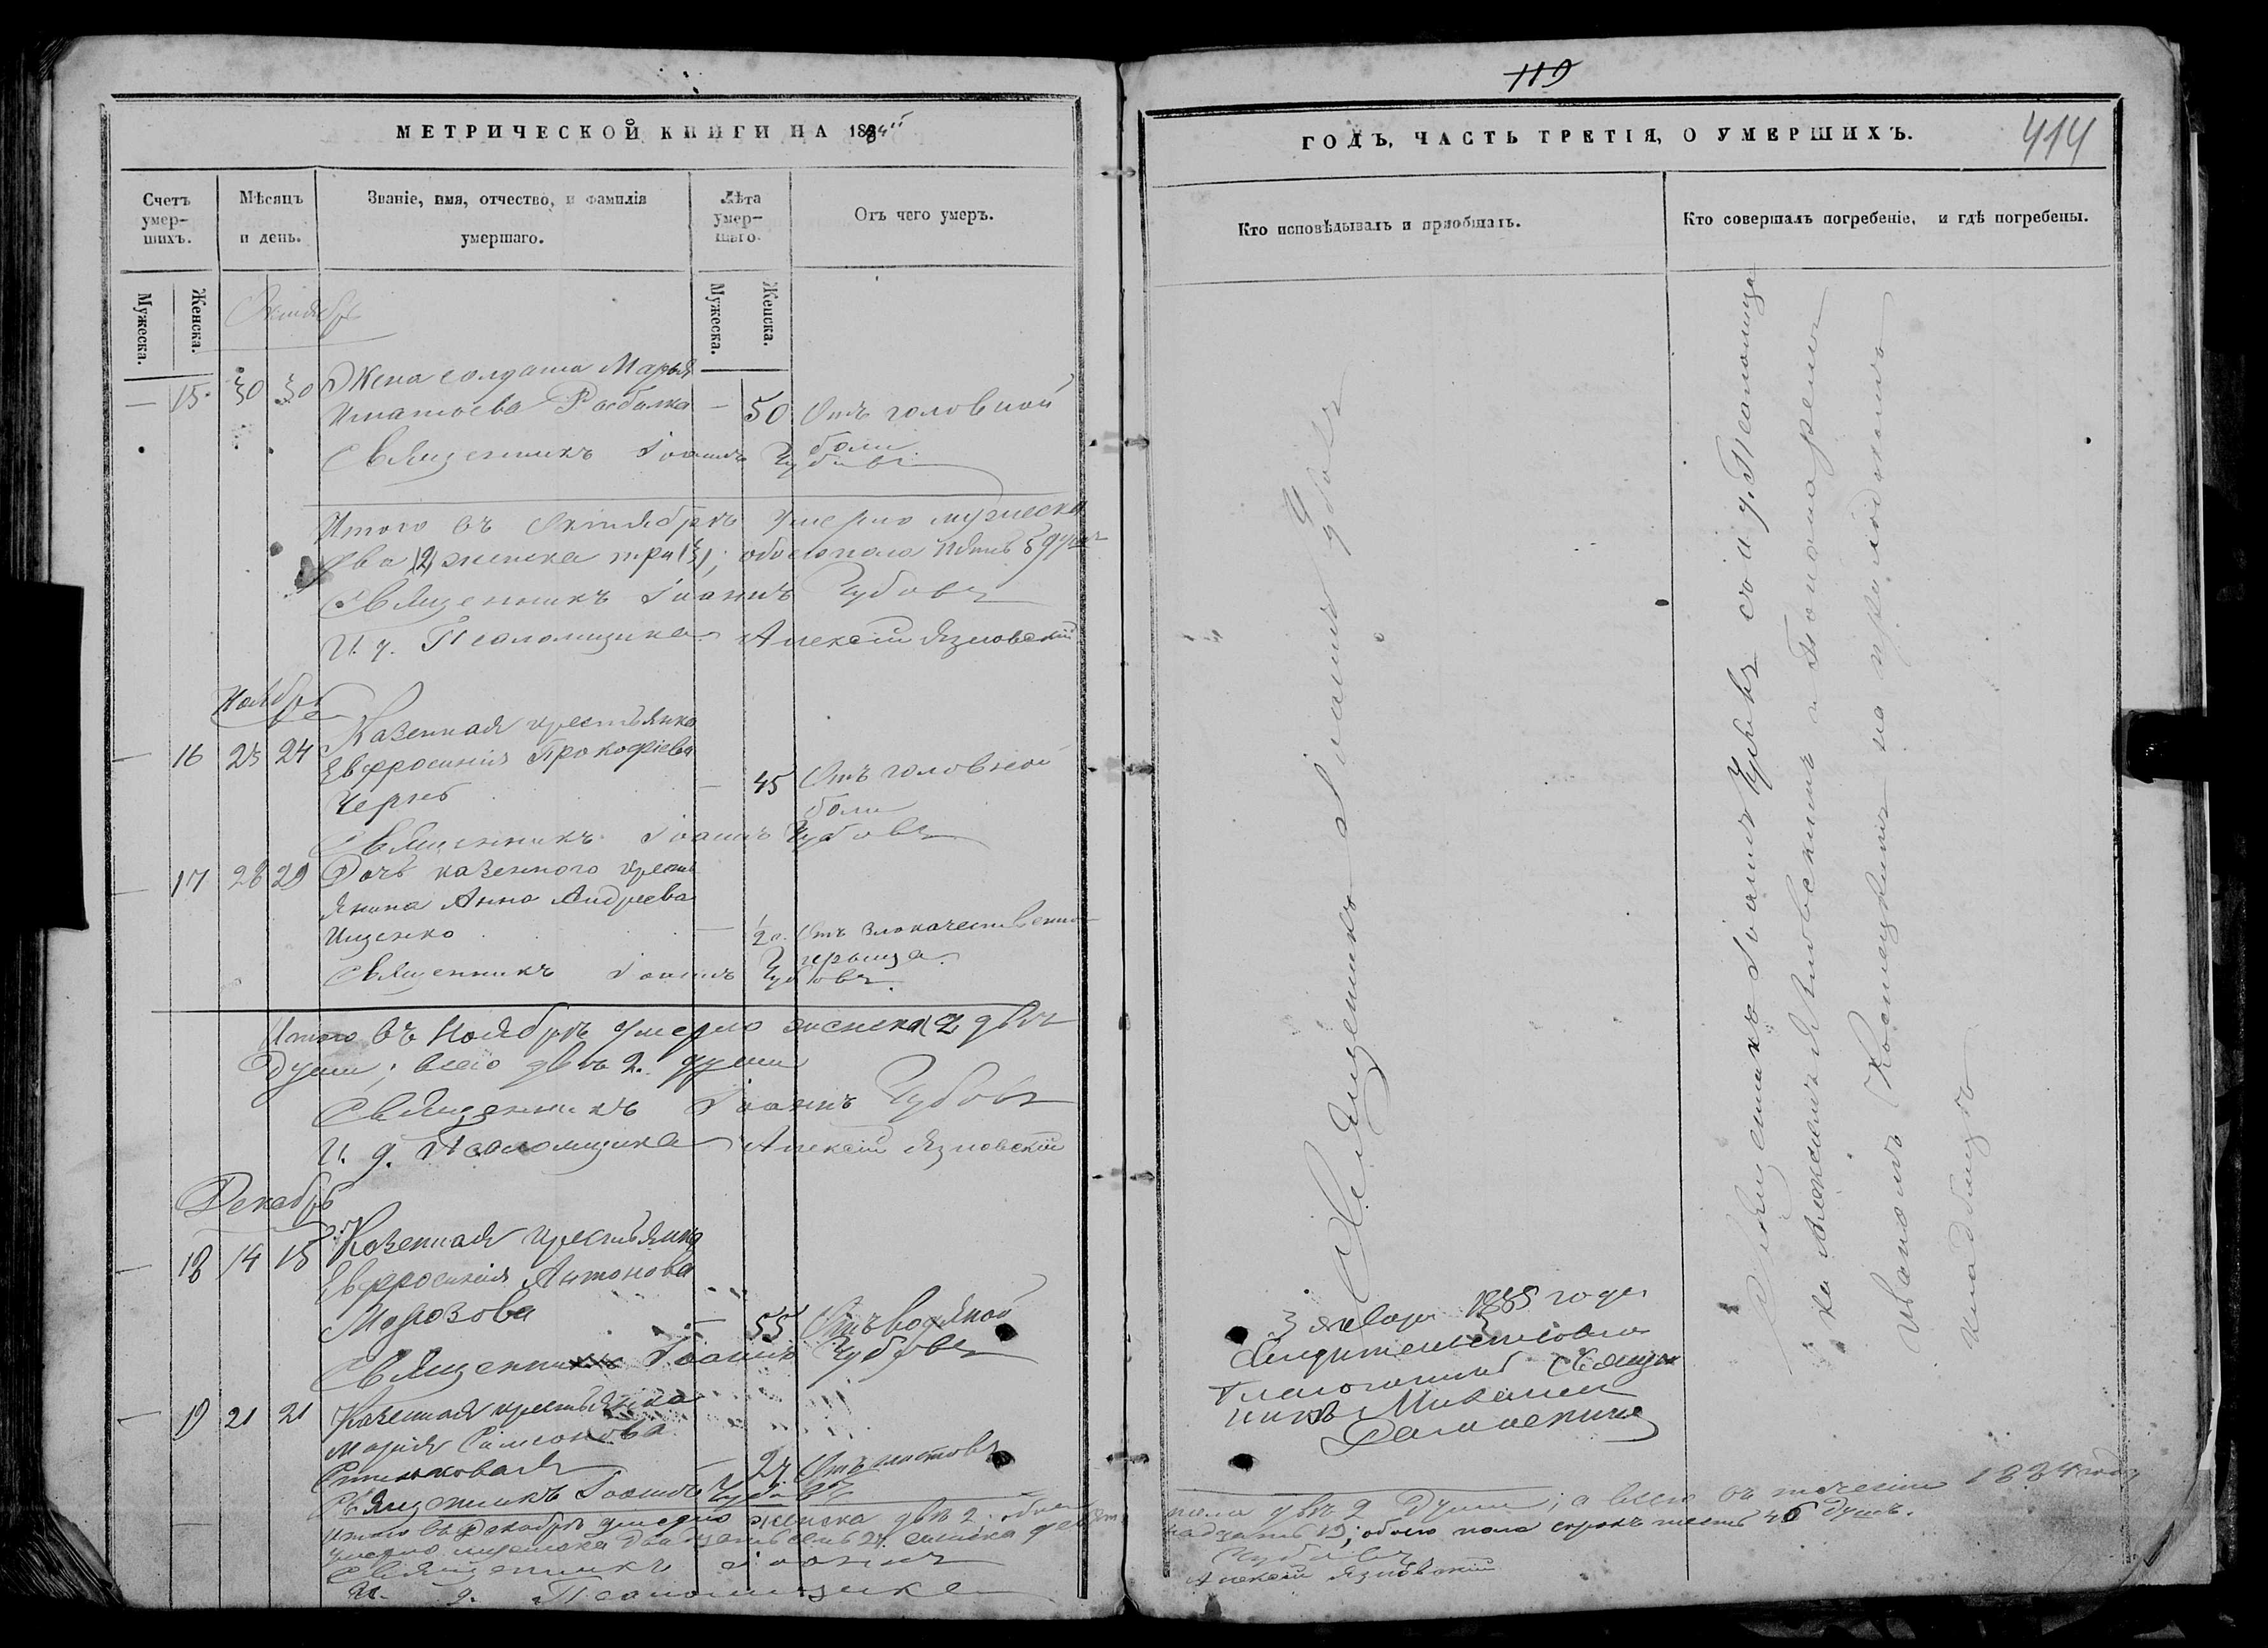 МЕТРИЧЕСКОЙ КНИГИ НА 1884
Счетъ умер-шихъ.
Мѣсяцъ и день.
Званіе, имя, отчество, и фамилія умершаго.
Лѣта умер-шаго.
Отъ чего умеръ.
Мужеска.
Женска.
Мужеска.
Женска.
Октябрь
— 15. 30 30 Жена солдата Марья
Игнатьева — 50 Отъ головной
боли
Священникъ Іоаннъ Чубовъ
Итого въ Октябрѣ умерло мужеска
два (2) женска три (3), обоего пола пять 5 душъ
Священникъ Іоаннъ Чубовъ
И. д. Псаломщика Алексій Язловскій
Ноябрь
— 16 23 24 Казенная крестьянка
Евфросинія Прокофіева
Чернь — 45 Отъ головной
боли
Священникъ Іоаннъ Чубовъ
— 17 28 29 Дочь казенного кресть
янина Анна Андреева
Ищенко — Отъ злокачественно
Священникъ Іоаннъ Чубовъ.
Итого въ Ноябрѣ умерло женска 2 двѣ
души; всего двѣ 2. души
Священникъ Іоаннъ Чубовъ
И. д. Псаломщика Алексій Язловскій
Декабрь
— 18 14 15 Казенная крестьянка
Евфросинія Антонова
Морозова — 55 Отъ водяной
Священникъ Іоаннъ Чубовъ
— 19 21 21 Казенная крестьянка
Марія Симеонова
Священникъ Іоаннъ Чубовъ
Итого въ Декабрѣ умерло женска двѣ 2. обоего
умерло мужеска двадцать семь 27. женска девят
Священникъ Іоаннъ
И. д. Псаломщика
119
ГОДЪ, ЧАСТЬ ТРЕТІЯ, О УМЕРШИХЪ.
414
Кто исповѣдывалъ и пріобщалъ.
Кто совершалъ погребеніе, и гдѣ погребены.
Священникъ Іоаннъ Чубовъ
Священникъ Іоаннъ Чубовъ съ и. д. Псаломщи
ка Алексіемъ Язловскимъ и Пономаремъ
Иваномъ на приходскомъ
кладбищѣ
3 января 1885 года
Свидѣтельствовалъ
Благочинный Священ
никъ Михаилъ
пола двѣ 2 души; а всего въ теченіи 1884 года
надцать 19; обоего пола сорокъ шесть 46 душъ.
Чубовъ
Алексій Язловскій